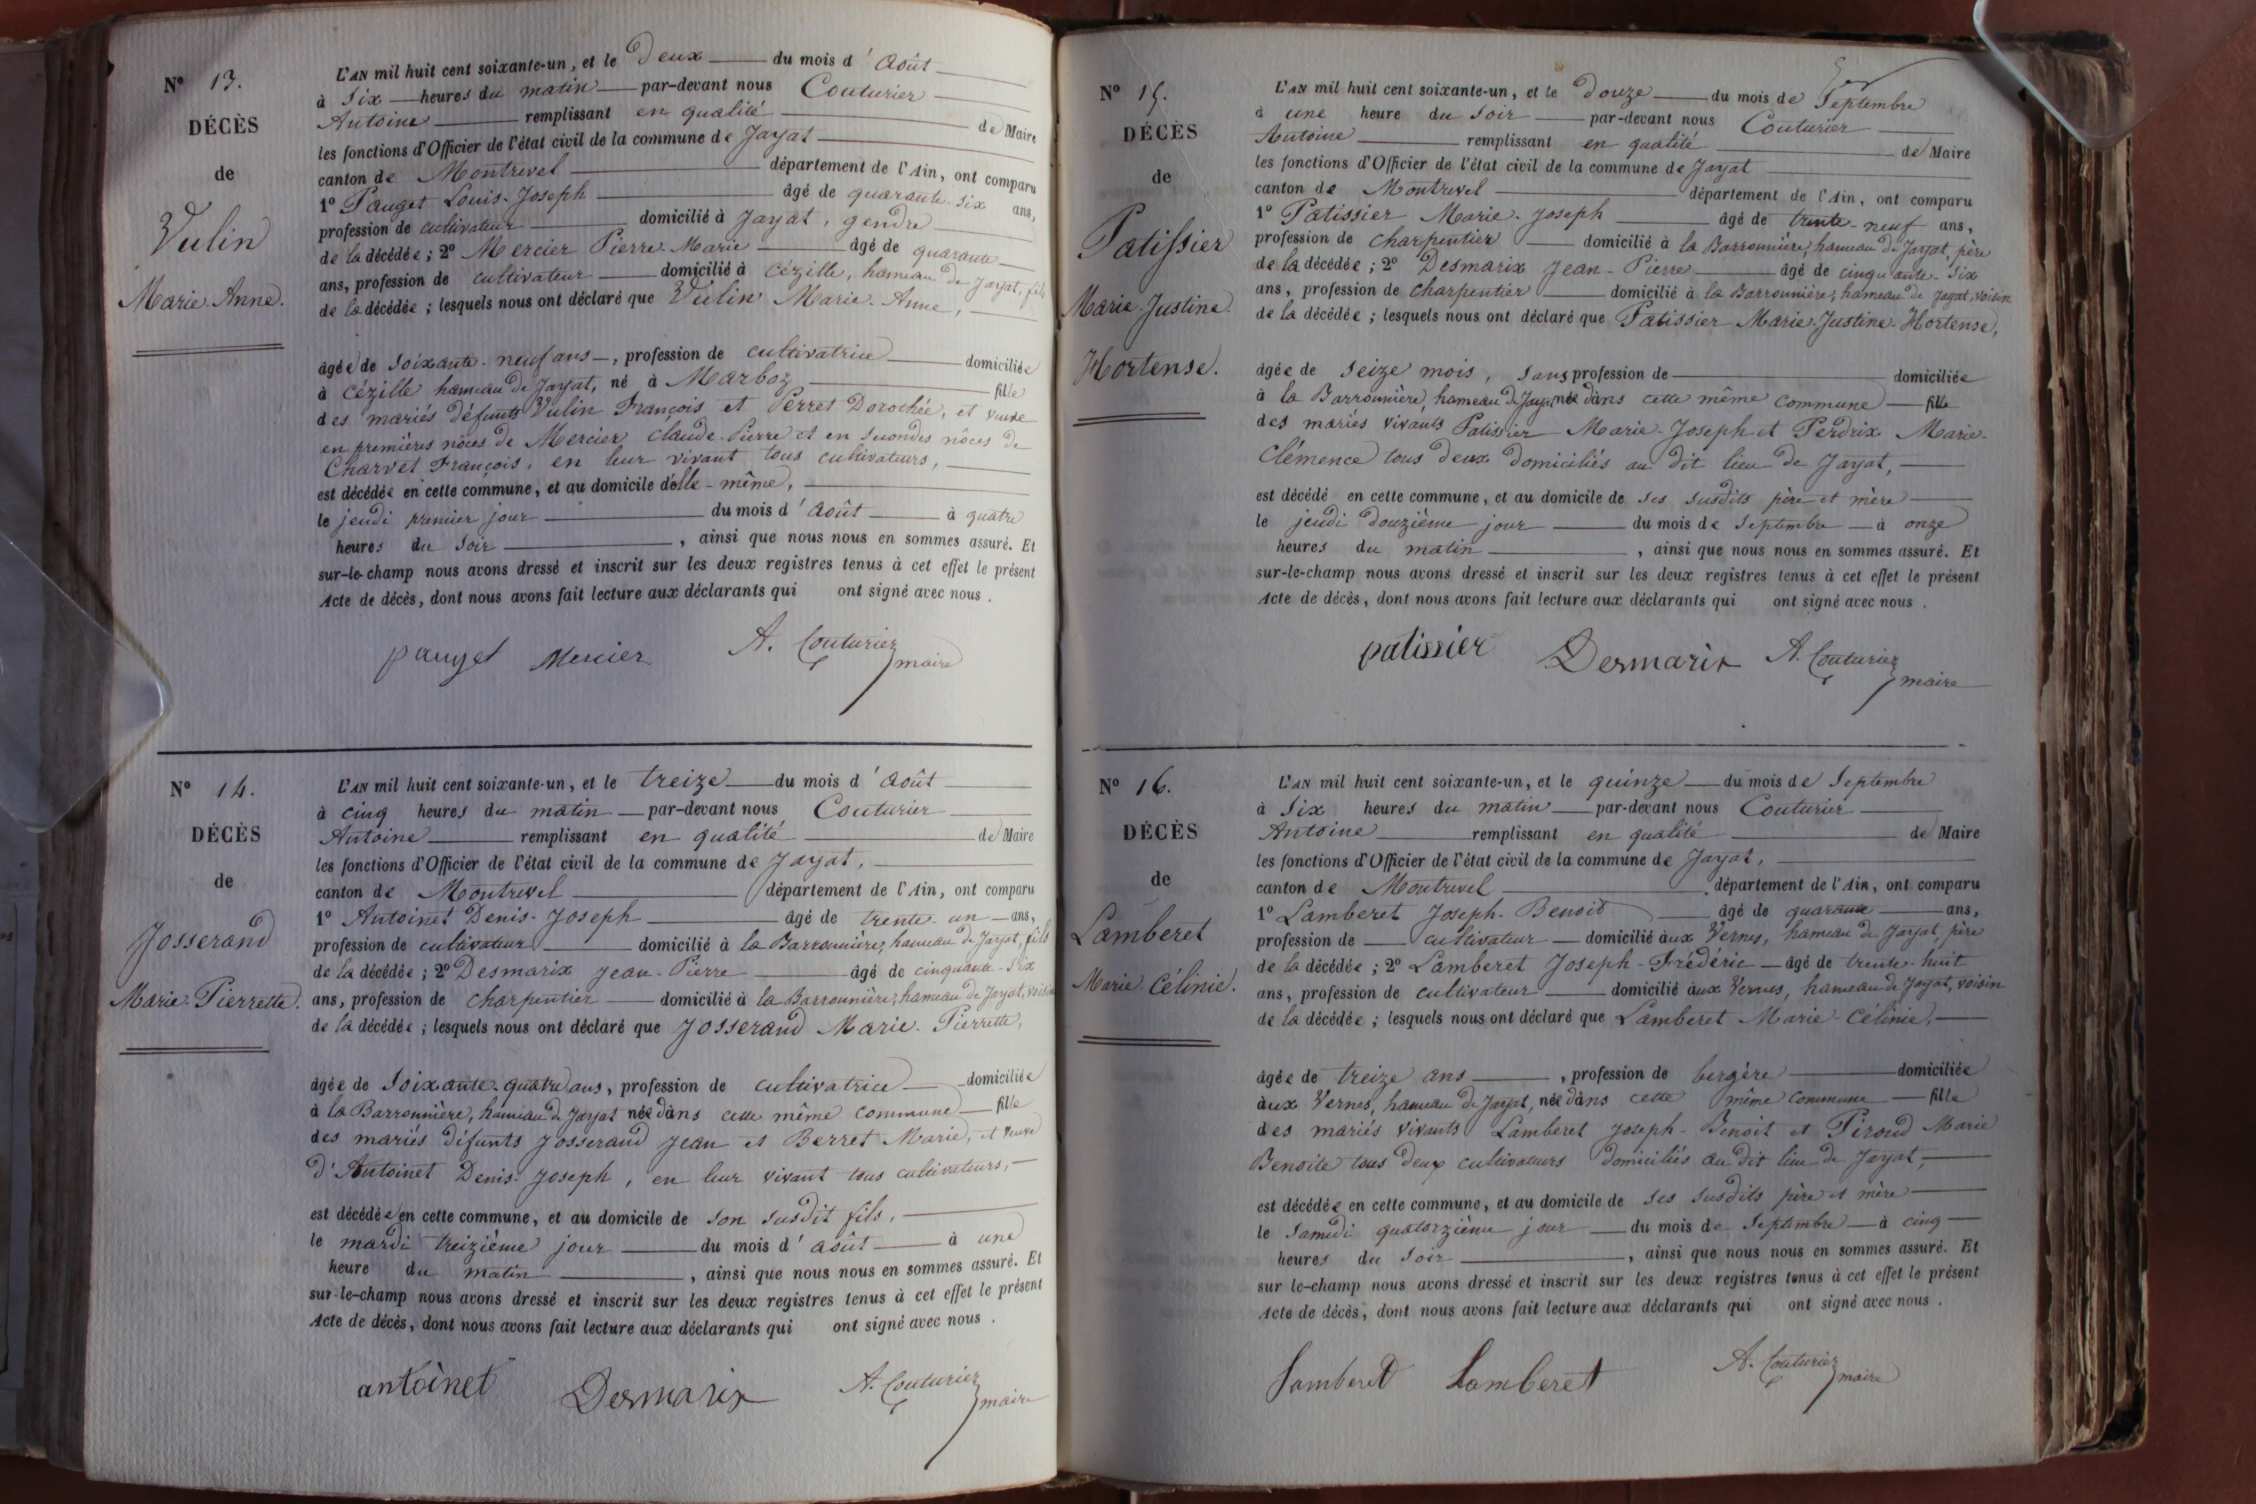 N° 13.
DÉCÈS
de
Vulin
Marie-Anne.
L'AN mil huit cent soixante-un, et le Deux du mois d'Août
à Six heures du matin par-devant nous Couturier
Antoine remplissant en qualité de Maire
les fonctions d'Officier de l'état civil de la commune de Jayat
canton de Montrevel département de l'Ain, ont comparu
1° Pauget Louis-Joseph âgé de quarante-six ans,
profession de cultivateur domicilié à Jayat, gendre
de la décédée; 2° Mercier Pierre-Marie âgé de quarante
ans, profession de cultivateur domicilié à Cézille, hameau de Jayat, fils
de la décédée; lesquels nous ont déclaré que Vulin Marie-Anne,
âgée de soixante-neuf ans, profession de cultivatrice domiciliée
à Cézille, hameau de Jayat, né à Marboz fille
des mariés défunts Vulin François et Perret Dorothée, et veuve
en premières nôces de Mercier Claude-Pierre et en secondes nôces de
Charvet François, en leur vivant tous cultivateurs,
est décédée en cette commune, et au domicile d'elle-même,
le jeudi premier jour du mois d'Août à quatre
heures du soir, ainsi que nous nous en sommes assuré. Et
sur-le-champ nous avons dressé et inscrit sur les deux registres tenus à cet effet le présent
Acte de décès, dont nous avons fait lecture aux déclarants qui ont signé avec nous.
pauget Mercier A. Couturier
maire
N° 14.
DÉCÈS
de
Josserand
Marie-Pierrette.
L'AN mil huit cent soixante-un, et le treize du mois d'Août
à cinq heures du matin par-devant nous Couturier
Antoine remplissant en qualité de Maire
les fonctions d'Officier de l'état civil de la commune de Jayat,
canton de Montrevel département de l'Ain, ont comparu
1° Antoinet Denis-Joseph âgé de trente-un ans,
profession de cultivateur domicilié à la Barronnière, hameau de Jayat, fils
de la décédée; 2° Desmarix Jean-Pierre âgé de cinquante-six
ans, profession de charpentier domicilié à la Barronnière, hameau de Jayat, voisin
de la décédée; lesquels nous ont déclaré que Josserand Marie-Pierrette,
âgée de soixante-quatre ans, profession de cultivatrice domiciliée
à la Barronnière, hameau de Jayat née dans cette même commune fille
des mariés défunts Josserand Jean et Berret Marie, et veuve
d'Antoinet Denis-Joseph, en leur vivant tous cultivateurs,
est décédée en cette commune, et au domicile de son susdit fils,
le mardi treizième jour du mois d'Août à une
heure du matin, ainsi que nous nous en sommes assuré. Et
sur-le-champ nous avons dressé et inscrit sur les deux registres tenus à cet effet le présent
Acte de décès, dont nous avons fait lecture aux déclarants qui ont signé avec nous.
antoinet Desmarix A. Couturier
maire
N° 15.
DÉCÈS
de
Patissier
Marie-Justine
Hortense.
L'AN mil huit cent soixante-un, et le douze du mois de Septembre
à une heure du soir par-devant nous Couturier
Antoine remplissant en qualité de Maire
les fonctions d'Officier de l'état civil de la commune de Jayat
canton de Montrevel département de l'Ain, ont comparu
1° Patissier Marie-Joseph âgé de trente-neuf ans,
profession de charpentier domicilié à la Barronnière, hameau de Jayat, père
de la décédée; 2° Desmarix Jean-Pierre âgé de cinquante-six
ans, profession de charpentier domicilié à la Barronnière, hameau de Jayat, voisin
de la décédée; lesquels nous ont déclaré que Patissier Marie-Justine-Hortense,
âgée de seize mois, sans profession de domiciliée
à la Barronnière, hameau de Jayat, née dans cette même commune fille
des mariés vivants Patissier Marie-Joseph et Perdrix Marie-
Clémence tous deux domiciliés au dit lieu de Jayat,
est décédé en cette commune, et au domicile de ses susdits père et mère
le jeudi douzième jour du mois de Septembre à onze
heures du matin, ainsi que nous nous en sommes assuré. Et
sur-le-champ nous avons dressé et inscrit sur les deux registres tenus à cet effet le présent
Acte de décès, dont nous avons fait lecture aux déclarants qui ont signé avec nous.
patissier Desmarix A. Couturier
maire
N° 16.
DÉCÈS
de
Lamberet
Marie Célinie.
L'AN mil huit cent soixante-un, et le quinze du mois de Septembre
à Six heures du matin par-devant nous Couturier
Antoine remplissant en qualité de Maire
les fonctions d'Officier de l'état civil de la commune de Jayat,
canton de Montrevel département de l'Ain, ont comparu
1° Lamberet Joseph-Benoit âgé de quarante ans,
profession de cultivateur domicilié aux Vernes, hameau de Jayat, père
de la décédée; 2° Lamberet Joseph-Frédéric âgé de trente-huit
ans, profession de cultivateur domicilié aux Vernes, hameau de Jayat, voisin
de la décédée; lesquels nous ont déclaré que Lamberet Marie-Célinie,
âgée de treize ans, profession de bergère domiciliée
aux Vernes, hameau de Jayat, née dans cette même commune fille
des mariés vivants Lamberet Joseph-Benoit et Piroud Marie
Benoite tous deux cultivateurs domiciliés au dit lieu de Jayat,
est décédée en cette commune, et au domicile de ses susdits père et mère
le samedi quatorzième jour du mois de Septembre à cinq
heures du soir, ainsi que nous nous en sommes assuré. Et
sur-le-champ nous avons dressé et inscrit sur les deux registres tenus à cet effet le présent
Acte de décès, dont nous avons fait lecture aux déclarants qui ont signé avec nous.
Lamberet Lamberet A. Couturier
maire